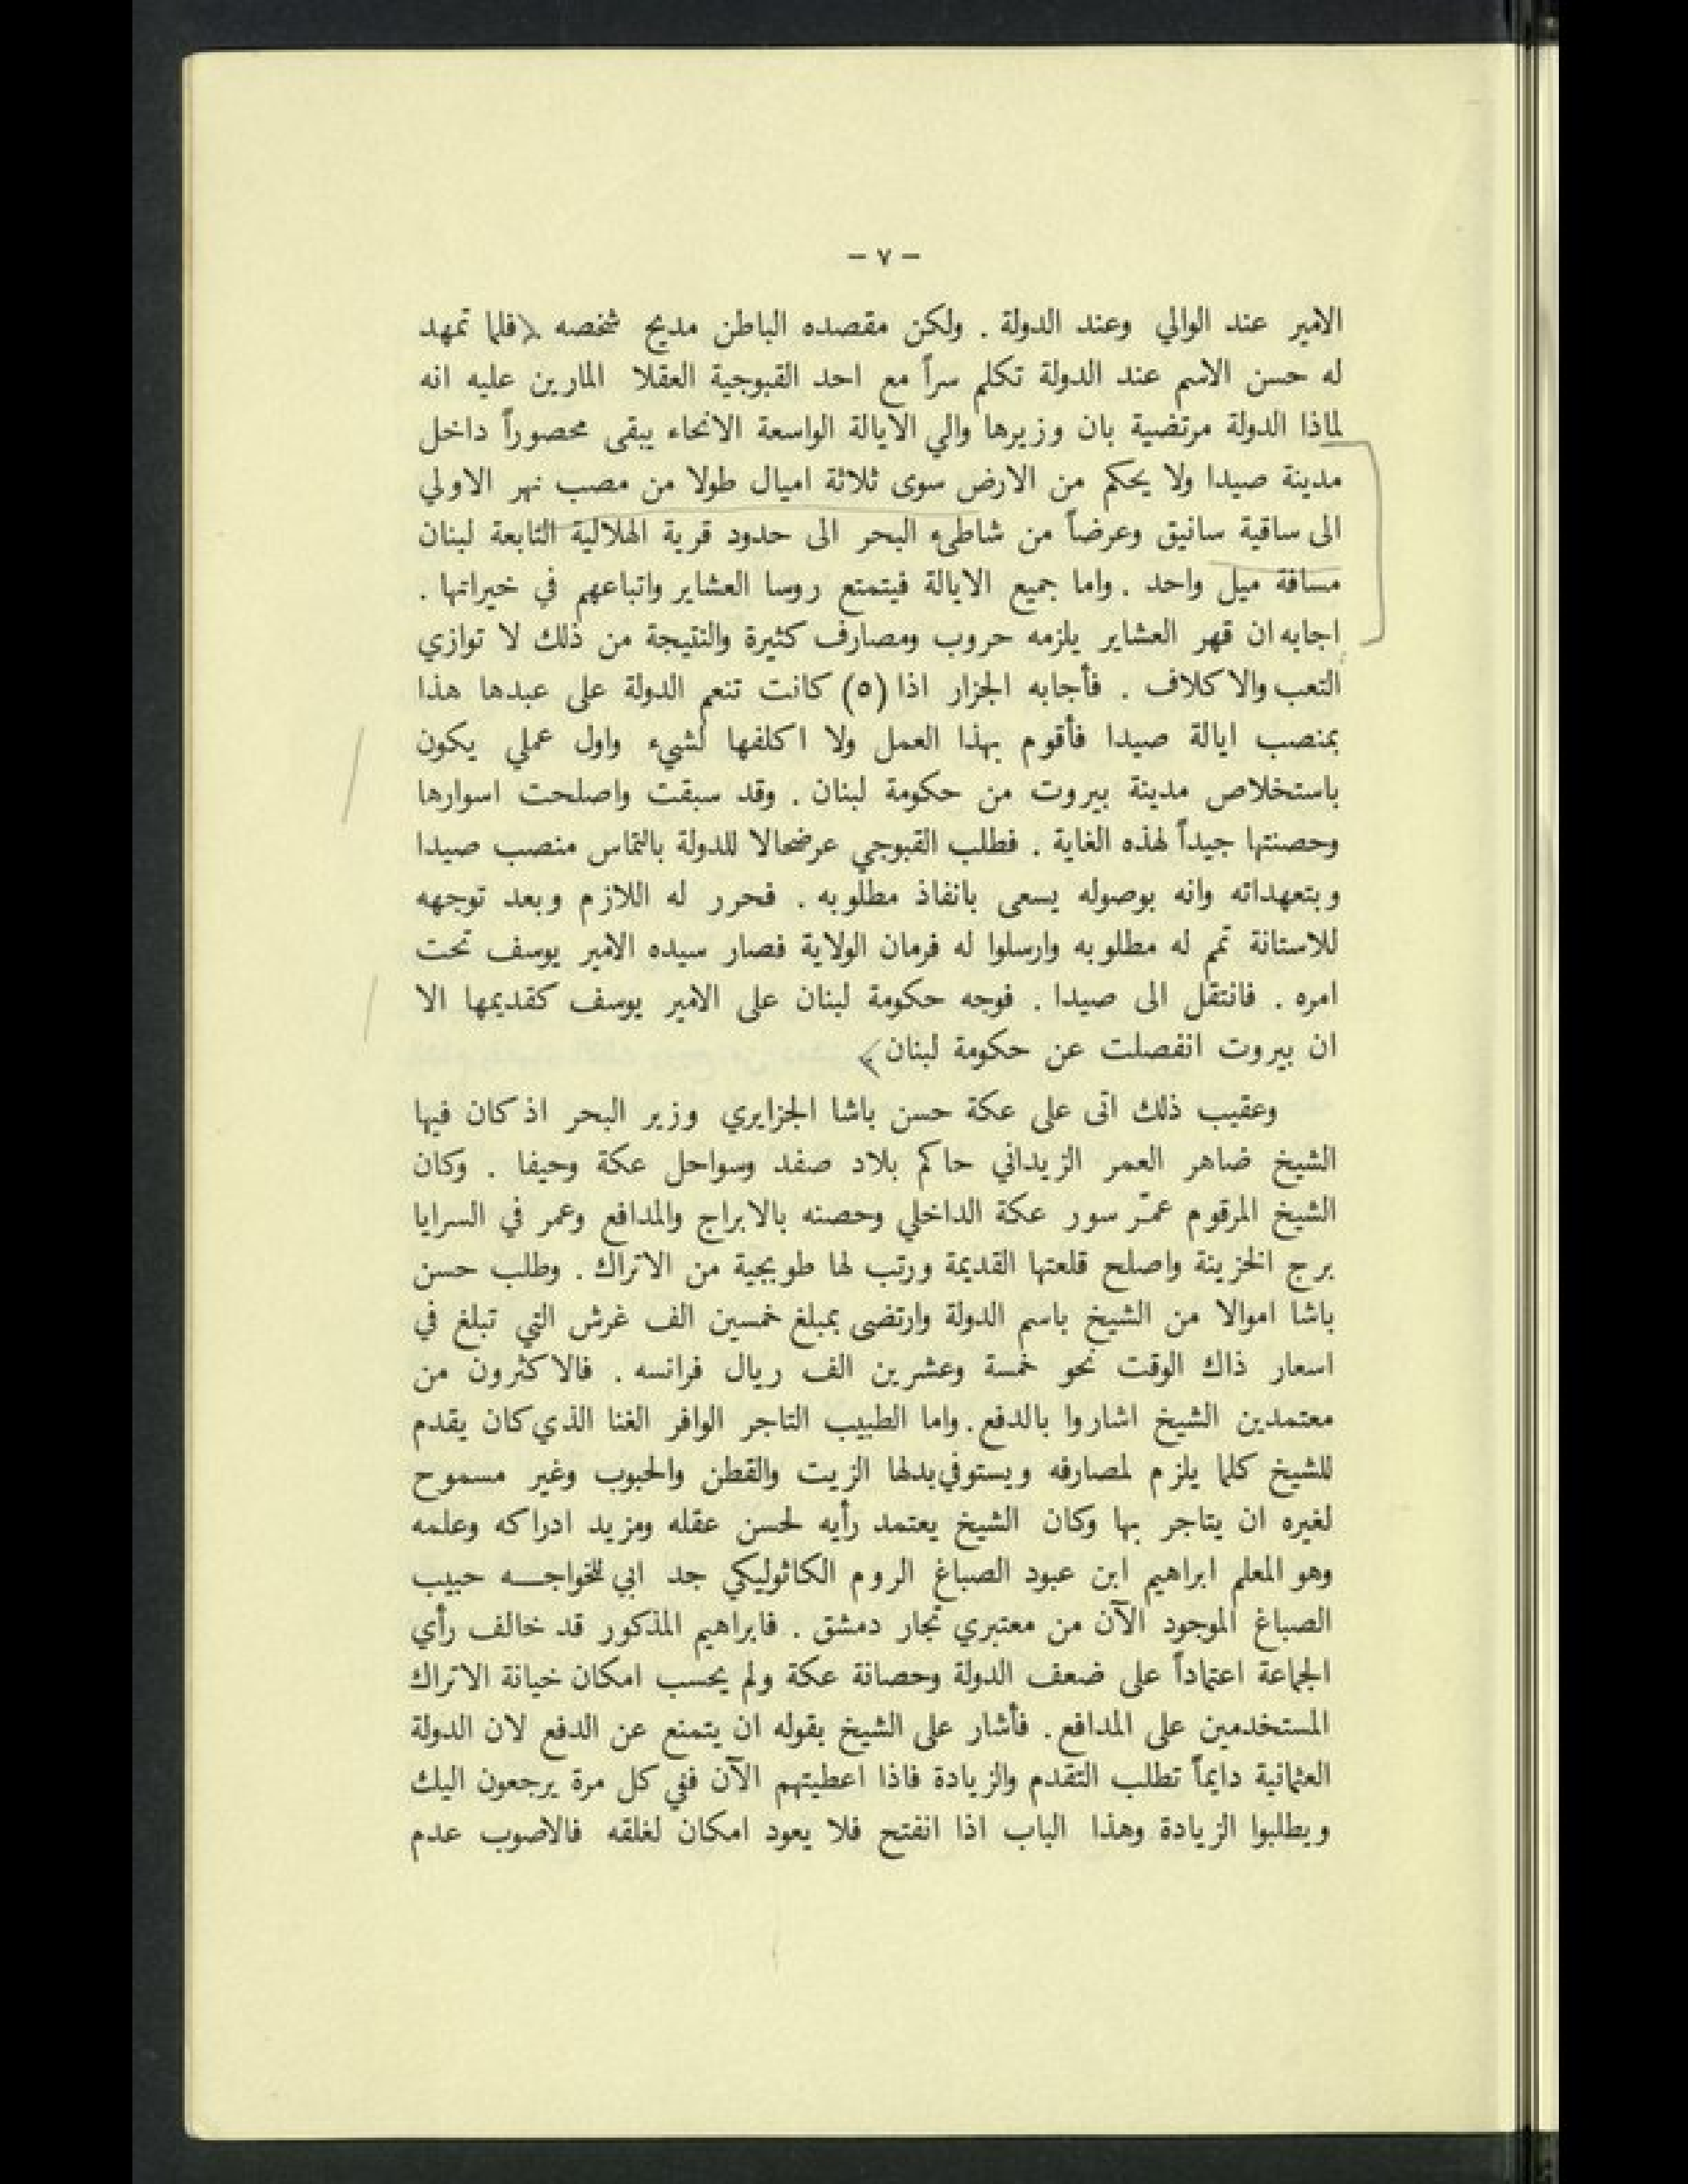 – ٧ –
الامير عند الوالي وعند الدولة . ولكن مقصده الباطن مديح شخصه (فلما تمهد
له حسن الاسم عند الدولة تكلم سراً مع احد القبوجية العقلا المارين عليه انه
لماذا الدولة مرتضية بان وزيرها والي الايالة الواسعة الانحاء يبقى محصوراً داخل
مدينة صيدا ولا يحكم من الارض سوى ثلاثة اميال طولا من مصب نهر الاولي
الى ساقية سانيق وعرضاً من شاطىء البحر الى حدود قرية الهلالية التابعة لبنان
مسافة ميل واحد . واما جميع الايالة فيتمتع روسا العشاير واتباعهم في خيراتها .
اجابه ان قهر العشاير يلزمه حروب ومصارف كثيرة والنتيجة من ذلك لا توازي
التعب والاكلاف . فأجابه الجزار اذا (٥) كانت تنعم الدولة على عبدها هذا
بمنصب ايالة صيدا فأقوم بهذا العمل ولا اكلفها لشيء واول عملي يكون
باستخلاص مدينة بيروت من حكومة لبنان . وقد سبقت واصلحت اسوارها
وحصنتها جيداً لهذه الغاية . فطلب القبوجي عرضحالا للدولة بالتماس منصب صيدا
وبتعهداته وانه بوصوله يسعى بانفاذ مطلوبه . فحرر له اللازم وبعد توجهه
للاستانة تم له مطلوبه وارسلوا له فرمان الولاية فصار سيده الامير يوسف تحت
امره . فانتقل الى صيدا . فوجه حكومة لبنان على الامير يوسف كقديمها الا
ان بيروت انفصلت عن حكومة لبنان)
وعقيب ذلك اتى على عكة حسن باشا الجزايري وزير البحر اذ كان فيها
الشيخ ضاهر العمر الزيداني حاكم بلاد صفد وسواحل عكة وحيفا . وكان
الشيخ المرقوم عمّر سور عكة الداخلي وحصنه بالابراج والمدافع وعمر في السرايا
برج الخزينة واصلح قلعتها القديمة ورتب لها طوبجية من الاتراك . وطلب حسن
باشا اموالا من الشيخ باسم الدولة وارتضى بمبلغ خمسين الف غرش التي تبلغ في
اسعار ذاك الوقت نحو خمسة وعشرين الف ريال فرانسه . فالاكثرون من
معتمدين الشيخ اشاروا بالدفع . واما الطبيب التاجر الوافر الغنا الذي كان يقدم
للشيخ كلما يلزم لمصارفه ويستوفي بدلها الزيت والقطن والحبوب وغير مسموح
لغيره ان يتاجر بها وكان الشيخ يعتمد رأيه لحسن عقله ومزيد ادراكه وعلمه
وهو المعلم ابراهيم ابن عبود الصباغ الروم الكاثوليكي جد ابي للخواجـه حبيب
الصباغ الموجود الآن من معتبري تجار دمشق . فابراهيم المذكور قد خالف رأي
الجماعة اعتماداً على ضعف الدولة وحصانة عكة ولم يحسب امكان خيانة الاتراك
المستخدمين على المدافع . فأشار على الشيخ بقوله ان يتمنع عن الدفع لان الدولة
العثمانية دايماً تطلب التقدم والزيادة فاذا اعطيتهم الآن ففي كل مرة يرجعون اليك
ويطلبوا الزيادة وهذا الباب اذا انفتح فلا يعود امكان لغلقه فالاصوب عدم